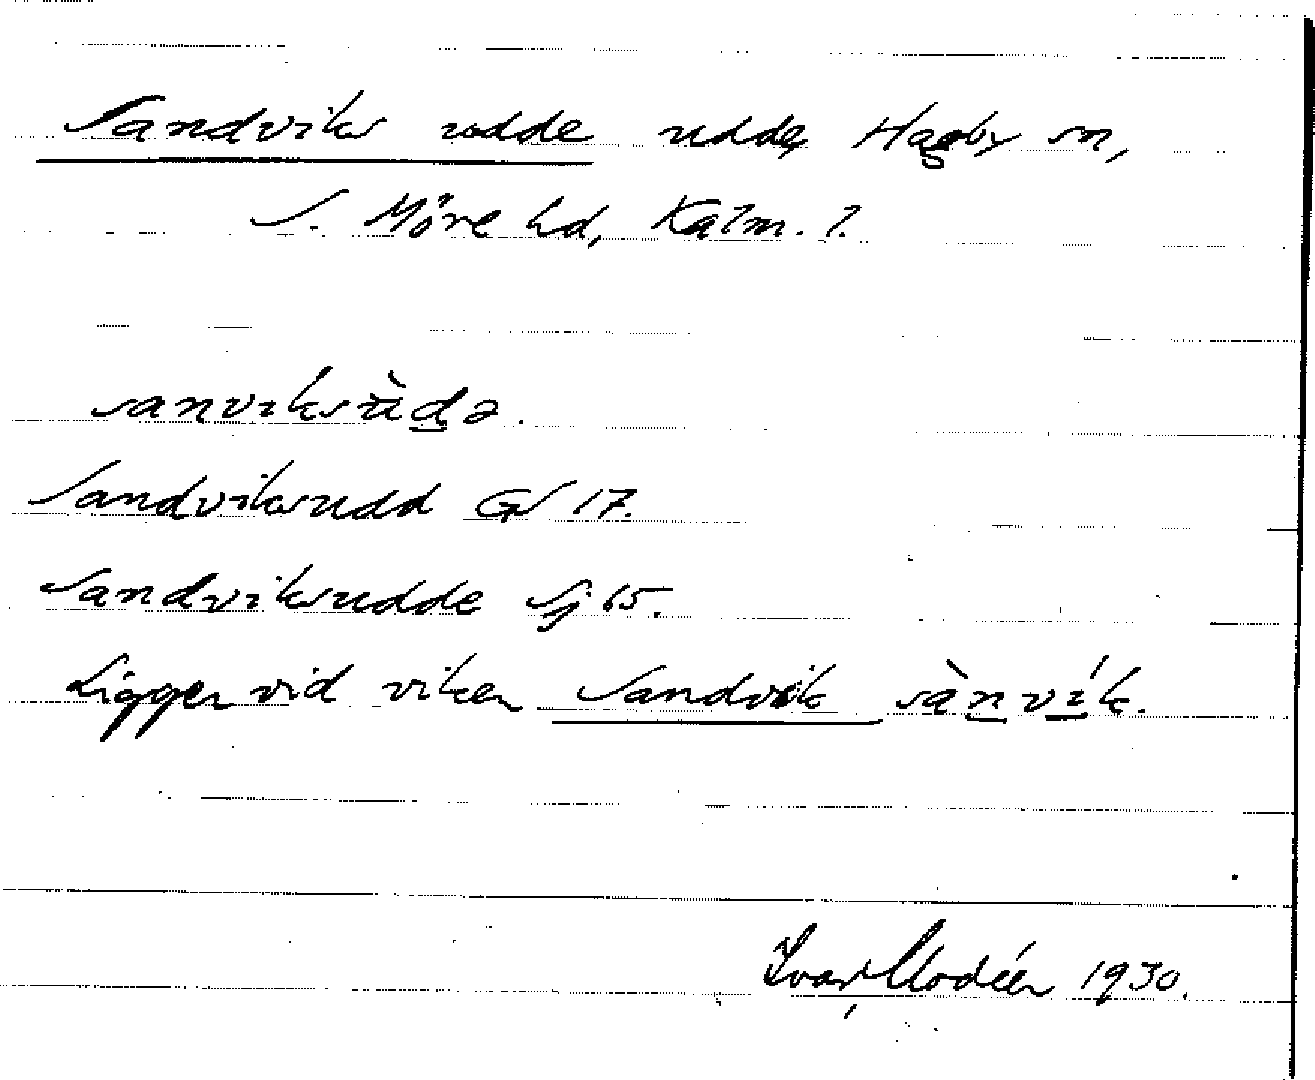 Sandviks udde udde, Hagby sn,
S. Möre hd, Kalm. l.
sanviksùdə.
Sandviksudd GV 17.
Sandviksudde Sj 65.
Ligger vid viken Sandvik sànvík.
Ivar Modéer 1930.